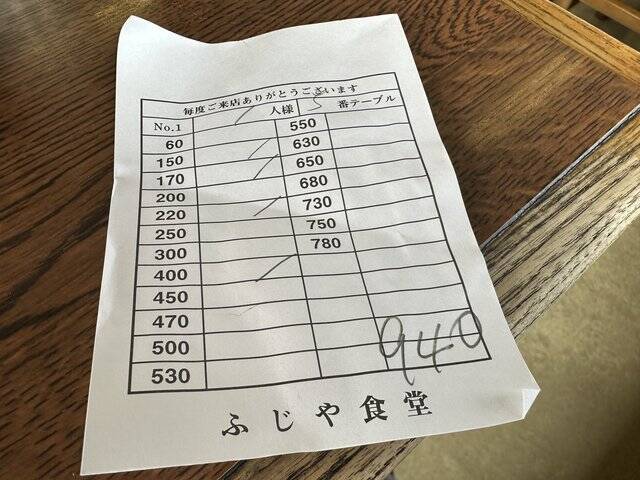 毎度ご来店ありがとうございます
No.1 1 人様 5 番テーブル
60 550
150 / 630
170 / 650
200 680
220 / 730
250 750
300 780
400 /
450
470
500
530
940
ふじや食堂